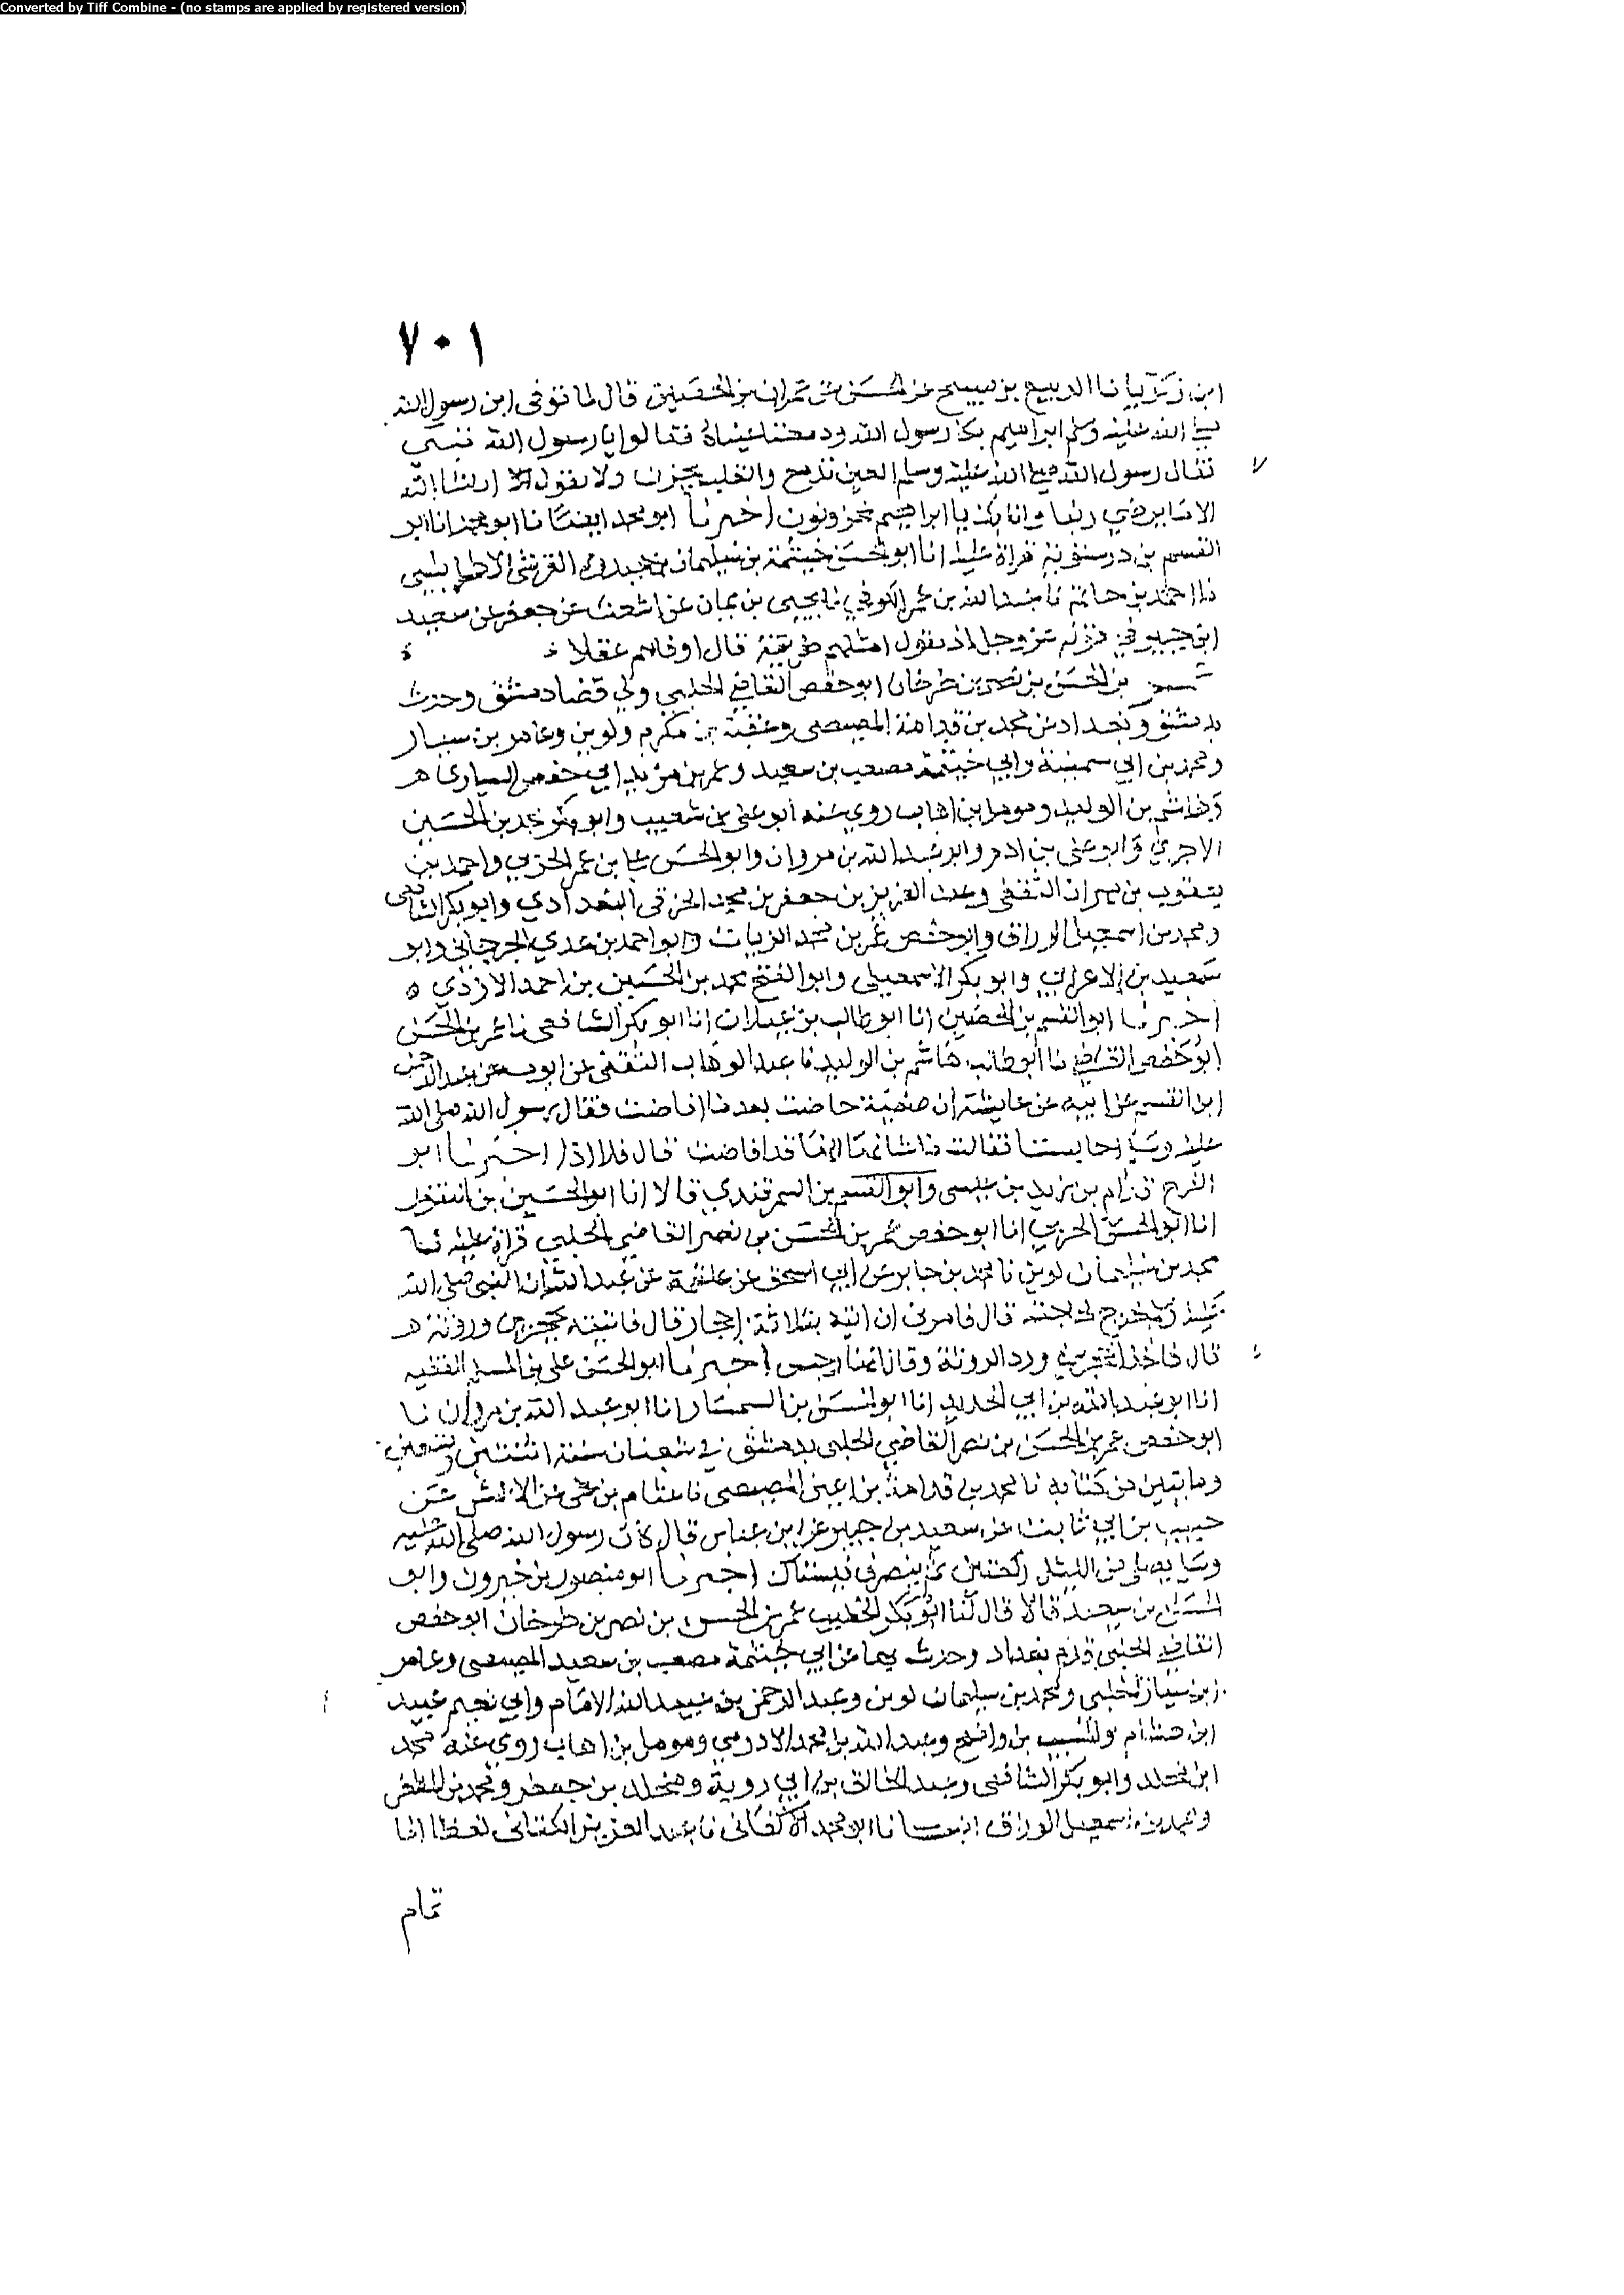 Converted by Tiff Combine - (no stamps are applied by registered version)
٧٠١
ابن زكريا نا الربيع بن صبيح عن الحسن عن عمران بن الحصين قال لما توفى ابن رسول الله
صلى الله عليه وسلم ابراهيم بكا رسول الله ودمعتا عيناه فقالوا يا رسول الله تبكي
فقال رسول الله صلى الله عليه وسلم العين تدمع والقلب يحزن ولا نقول الا ان شا الله
الا ما يرضي ربنا وانا بك يا ابراهيم محزونون اخبرنا ابو محمد ايضا نا ابو محمد انا ابو
القسم بن درستويه قراة عليه انا ابو الحسن خيثمة بن سليمان بن حيدرة القرشي الاطرابلسي
نا احمد بن حاتم نا عبد الله بن عمر الكوفي نا يحيى بن يمان عن اشعث عن جعفر عن سعيد
ابن جبير في قوله عز وجل اذ يقول امثلهم طريقة قال اوفاهم عقلا
عمر بن الحسن بن نصر بن طرخان ابو حفص القاضي الحلبي ولي قضا دمشق وحدث
بدمشق وبغداد عن محمد بن قدامة المصيصي وعقبة بن مكرم ولوين وعامر بن سيار
ومحمد بن ابي سمينة وابي خيثمة مصعب بن سعيد وعمر بن مزيد ابي حفص السياري
وهاشم بن الوليد ومومل بن اهاب روي عنه ابو علي بن شعيب وابو بكر محمد بن الحسين
الاجري وابو علي بن ادم وابو عبد الله بن مروان وابو الحسن علي بن عمر الحربي واحمد بن
يعقوب بن مهران الثقفي وعبد العزيز بن جعفر بن محمد الخرقي البغدادي وابو بكر الشافعي
ومحمد بن اسمعيل الوراق وابو حفص عمر بن محمد الزيات وابو احمد بن عدي الجرجاني وابو
سعيد بن الاعرابي وابو بكر الاسمعيلي وابو الفتح محمد بن الحسين بن احمد الازدي
اخبرنا ابو القسم بن الحصين انا ابو طالب بن غيلان انا ابو بكر الشافعي نا عمر بن الحسن
ابو حفص القاضي نا ابو طالب هاشم بن الوليد نا عبد الوهاب الثقفي عن ايوب عن عبد الرحمن
ابن القسم عن ابيه عن عايشة ان صفية حاضت بعدما افاضت فقال رسول الله صلى الله
عليه وسلم احابستنا فقالت انها قد افاضت قال فلا اذا اخبرنا ابو
الفرج قوام بن زيد بن عيسى وابو القسم بن السمرقندي قالا انا ابو الحسين بن النقور
انا ابو الحسن الحربي انا ابو حفص عمر بن الحسن بن نصر القاضي الحلبي قراة عليه نا
محمد بن سليمان لوين نا محمد بن جابر عن ابي اسحق عن علقمة عن عبد الله ان النبي صلى الله
عليه خرج لحاجته قال فامرني ان اتيه بثلاثة احجار قال فاتيته بحجرين وروثة
قال فاخذ الحجرين ورد الروثة وقال انها رجس اخبرنا ابو الحسن علي بن المسلم الفقيه
انا ابو عبد الله بن ابي الحديد انا ابو الحسن بن السمسار انا ابو عبد الله بن مروان نا
ابو حفص عمر بن الحسن بن نصر القاضي الحلبي بدمشق في شعبان سنة اثنتين وتسعين
ومايتين من كتابه نا محمد بن قدامة بن اعين المصيصي نا عثام بن علي عن الاعمش عن
حبيب بن ابي ثابت عن سعيد بن جبير عن ابن عباس قال كان رسول الله صلى الله عليه
وسلم يصلي من الليل ركعتين ثم ينصرف فيستاك اخبرنا ابو منصور بن خيرون وابو
الحسن بن سعيد قالا قال لنا ابو بكر الخطيب عمر بن الحسن بن نصر بن طرخان ابو حفص
القاضي الحلبي قدم بغداد وحدث بها عن ابي خيثمة مصعب بن سعيد المصيصي وعامر
ابن سيار الحلبي ومحمد بن سليمان لوين وعبد الرحمن بن عبيد الله الامام وابي نعيم عبيد
ابن هشام والمسيب بن واضح وعبد الله بن محمد الادرمي ومومل بن اهاب روي عنه محمد
ابن مخلد وابو بكر الشافعي وعبد الخالق بن ابي روبة ومخلد بن جعفر ومحمد بن المظفر
ومحمد بن اسمعيل الوراق انبانا ابو محمد الاكفاني نا عبد العزيز الكتاني لفظا انا
تمام